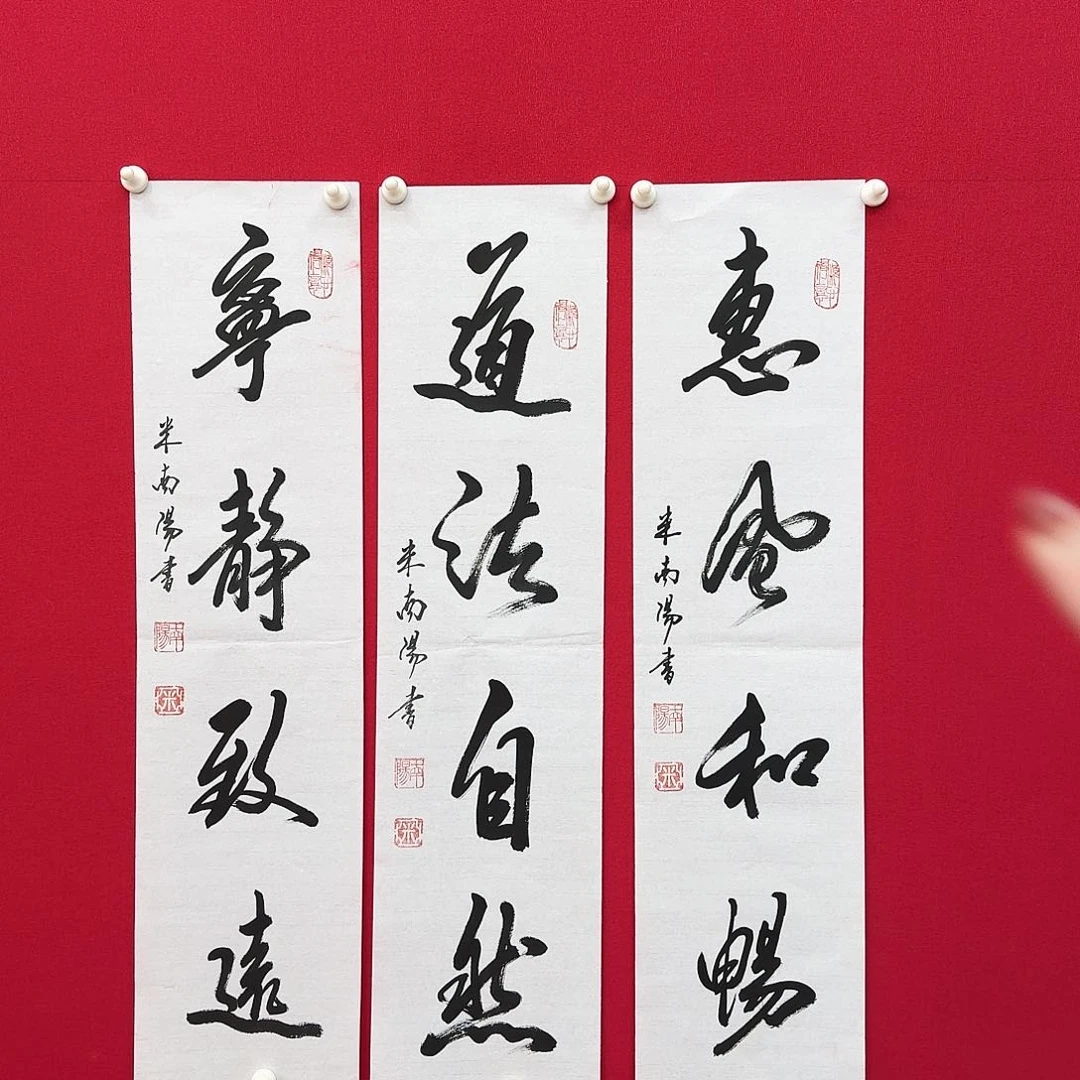 惠風和暢
米南陽書
道法自然
米南陽書
寧靜致遠
米南陽書